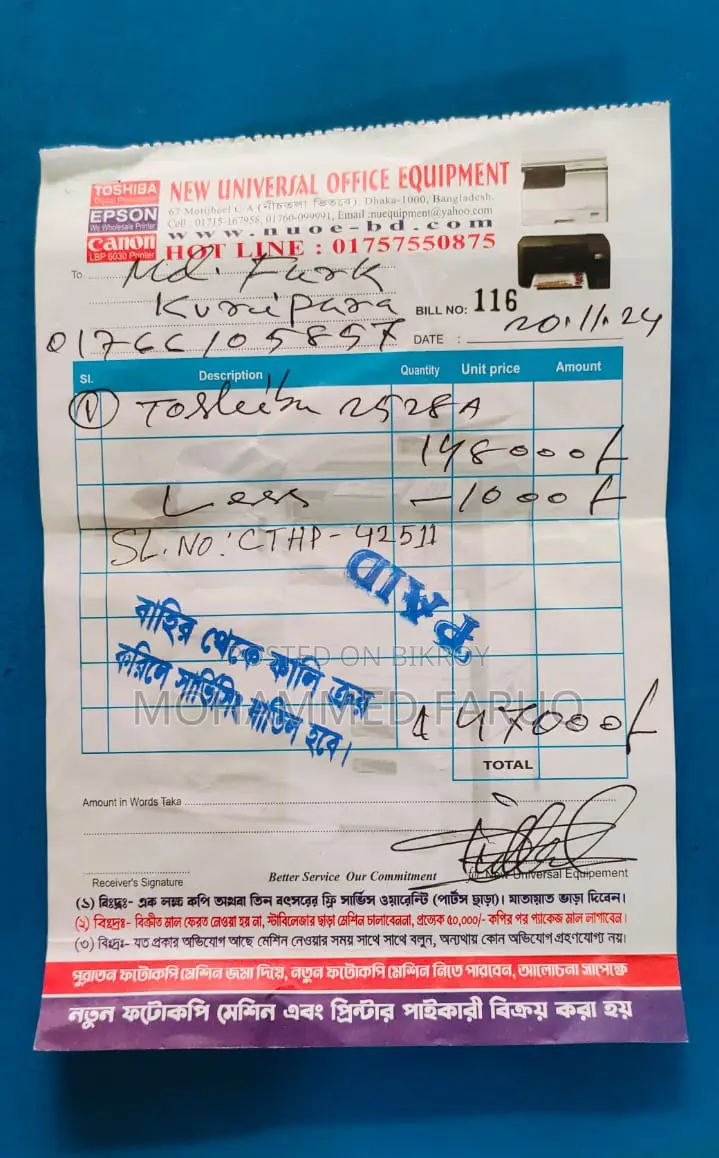 TOSHIBA
Digital Photocopier
EPSON
We Wholesale Printer
Canon
LBP 6030 Printer
NEW UNIVERSAL OFFICE EQUIPMENT
67 Motijheel C/A (নীচতলা ভিতরে), Dhaka-1000, Bangladesh.
Cell : 01715-167958, 01760-099991, Email :nuequipment@yahoo.com
www.nuoe-bd.com
HOT LINE : 01757550875
To Md. Furk
Kunipara
01766105857
BILL NO: 116
DATE : 20.11.24
Sl. Description Quantity Unit price Amount
1 Toshiba 2528A
148000/
Less -1000/
SL.NO: CTHP-42511
PAID
বাহির থেকে কালি ক্রয়
করিলে সার্ভিসিং বাতিল হবে।
POSTED ON BIKROY
MOHAMMED FARUQ
147000/
TOTAL
Amount in Words Taka
Receiver's Signature
Better Service Our Commitment
for New Universal Equipement
(১) বিঃদ্রঃ- এক লক্ষ কপি অথবা তিন বৎসরের ফ্রি সার্ভিস ওয়ারেন্টি (পার্টস ছাড়া)। যাতায়াত ভাড়া দিবেন।
(২) বিঃদ্রঃ- বিক্রীত মাল ফেরত নেওয়া হয় না, স্টাবিলেজার ছাড়া মেশিন চালাবেননা, প্রত্যেক ৫০,০০০/- কপির পর প্যাকেজ মাল লাগাবেন।
(৩) বিঃদ্রঃ- যত প্রকার অভিযোগ আছে মেশিন নেওয়ার সময় সাথে সাথে বলুন, অন্যথায় কোন অভিযোগ গ্রহণযোগ্য নয়।
পুরাতন ফটোকপি মেশিন জমা দিয়ে, নতুন ফটোকপি মেশিন নিতে পারবেন, আলোচনা সাপেক্ষে
নতুন ফটোকপি মেশিন এবং প্রিন্টার পাইকারী বিক্রয় করা হয়